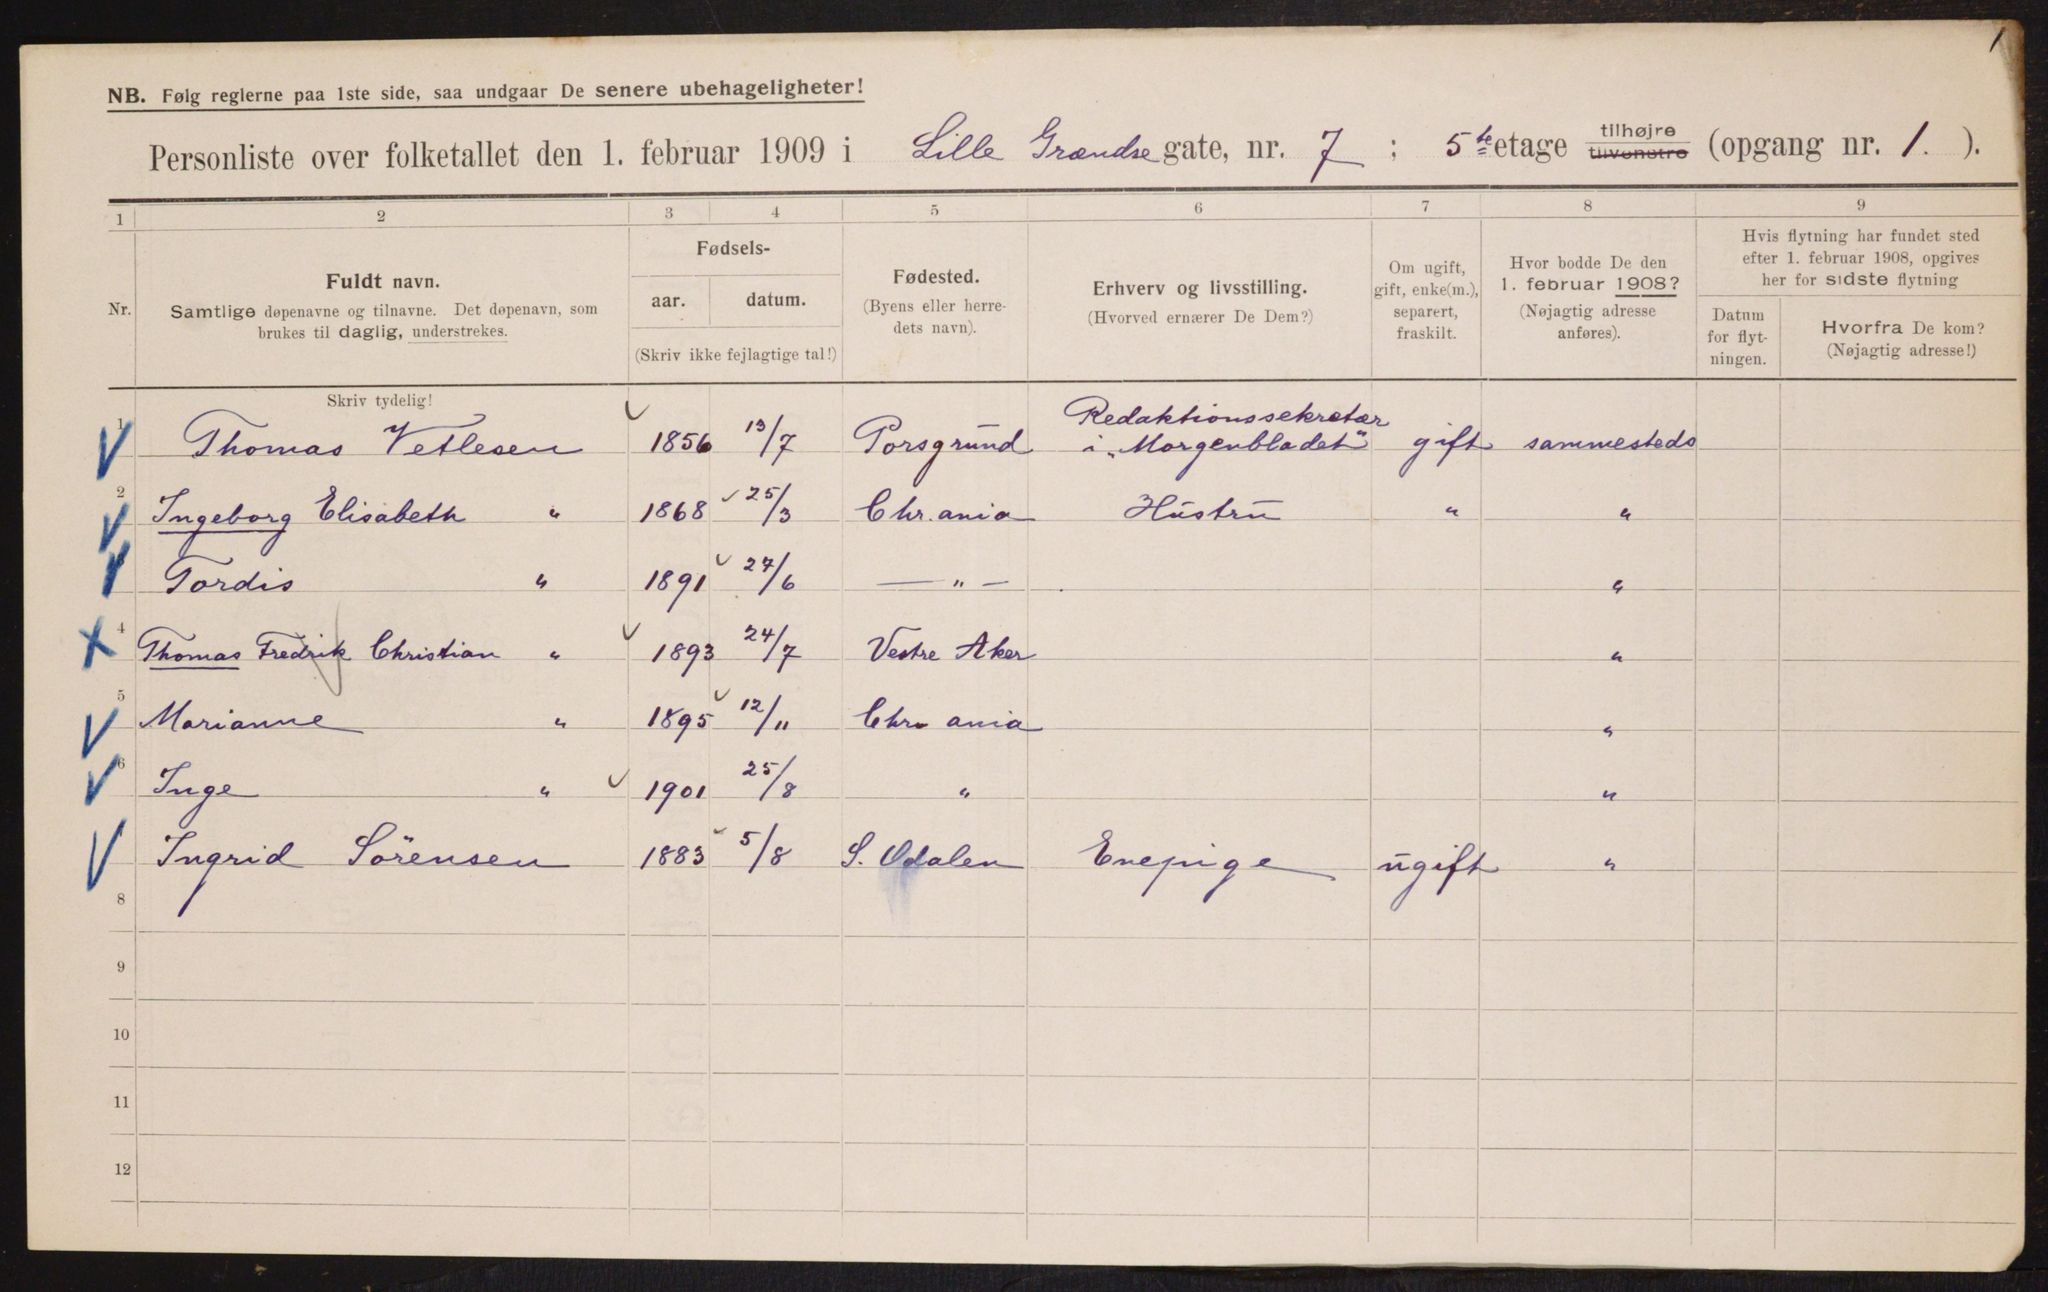 1
NB. Følg reglerne paa 1ste side, saa undgaar De senere ubehageligheter!
Personliste over folketallet den 1. februar 1909 i Lille Grændse gate, nr. 7 ; 5te etage tilhøjre tilvenstre (opgang nr. 1. ).
1 2 3 4 5 6 7 8 9
Nr.
Fuldt navn.
Samtlige døpenavne og tilnavne. Det døpenavn, som
brukes til daglig, understrekes.
Fødsels-
aar. datum.
(Skriv ikke fejlagtige tal!)
Fødested.
(Byens eller herre-
dets navn).
Erhverv og livsstilling.
(Hvorved ernærer De Dem?)
Om ugift,
gift, enke(m.),
separert,
fraskilt.
Hvor bodde De den
1. februar 1908?
(Nøjagtig adresse
anføres).
Hvis flytning har fundet sted
efter 1. februar 1908, opgives
her for sidste flytning
Datum
for flyt-
ningen.
Hvorfra De kom?
(Nøjagtig adresse!)
Skriv tydelig!
1 Thomas Vetlesen 1856 13/7 Porsgrund Redaktionssekretær
i „Morgenbladet" gift sammesteds
2 Ingeborg Elisabeth " 1868 25/3 Chr.ania Hustru " "
Tordis " 1891 27/6 — " — "
4 Thomas Fredrik Christian " 1893 24/7 Vestre Aker "
5 Marianne " 1895 12/11 Chr. ania "
6 Inge " 1901 25/8 " "
Ingrid Sörensen 1883 5/8 S. Odalen Enepige ugift "
8
9
10
11
12